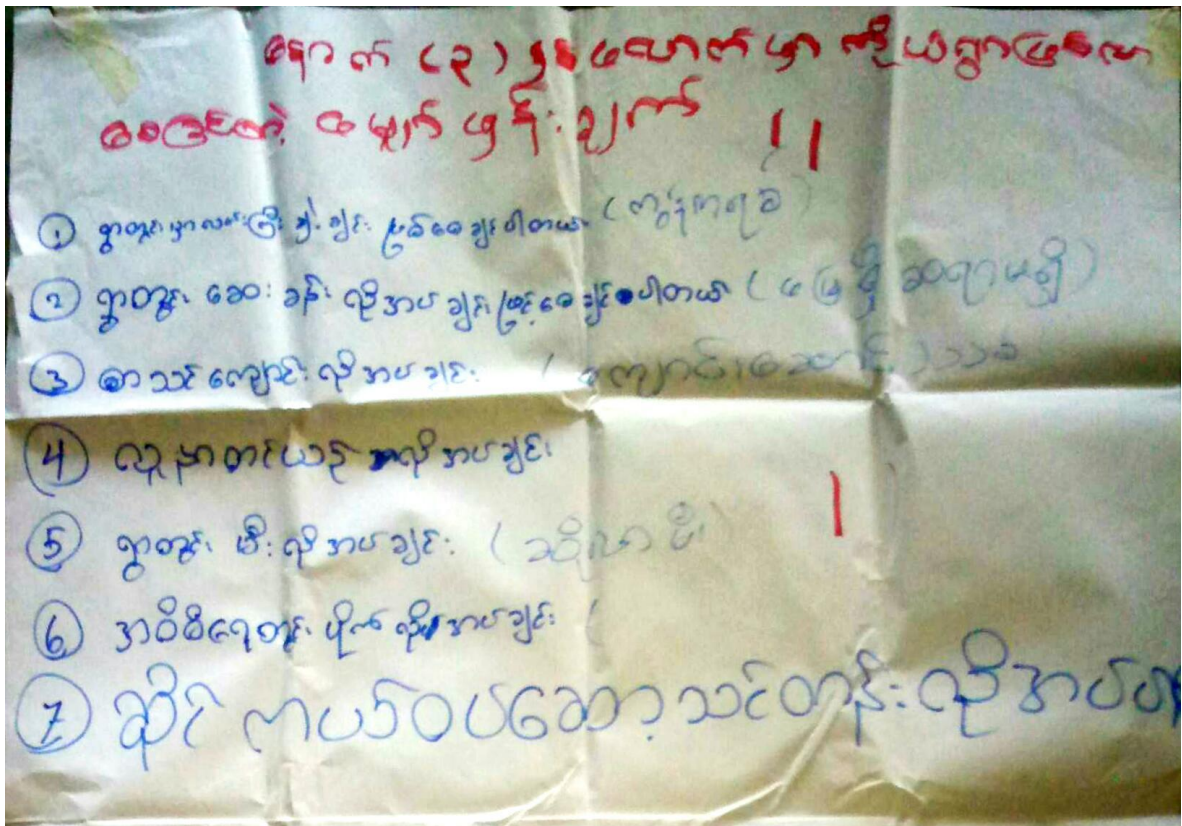 နောက် (၃) နှစ်လောက်မှာ ကိုယ့်ရွာဖြစ်လာ
စေခြင်တဲ့ မျှော်မှန်းချက်
① ရွာတွင်းမှာလမ်းကြီး ချဲ့ချင်း ဖြစ်စေချင်ပါတယ် (ကွန်ကရစ်)
② ရွာတွင်း ဆေးခန်း လိုအပ်ချင်း ဖြင့်စေချင်ပါတယ် (
③ စာသင်ကျောင်း လိုအပ်ချင်း (ကျောင်းဆောင်)
④ လူနာတင်ယဉ် လိုအပ်ချင်း
⑤ ရွာတွင်း မီးလိုအပ်ချင်း (ဆိုလာမီး)
⑥ အဝီစိရေတွင်း ပိုက်လိုအပ်ချင်း (
⑦ ဆိုင်ကယ်ဝပ်ဆော့သင်တန်းလိုအပ်